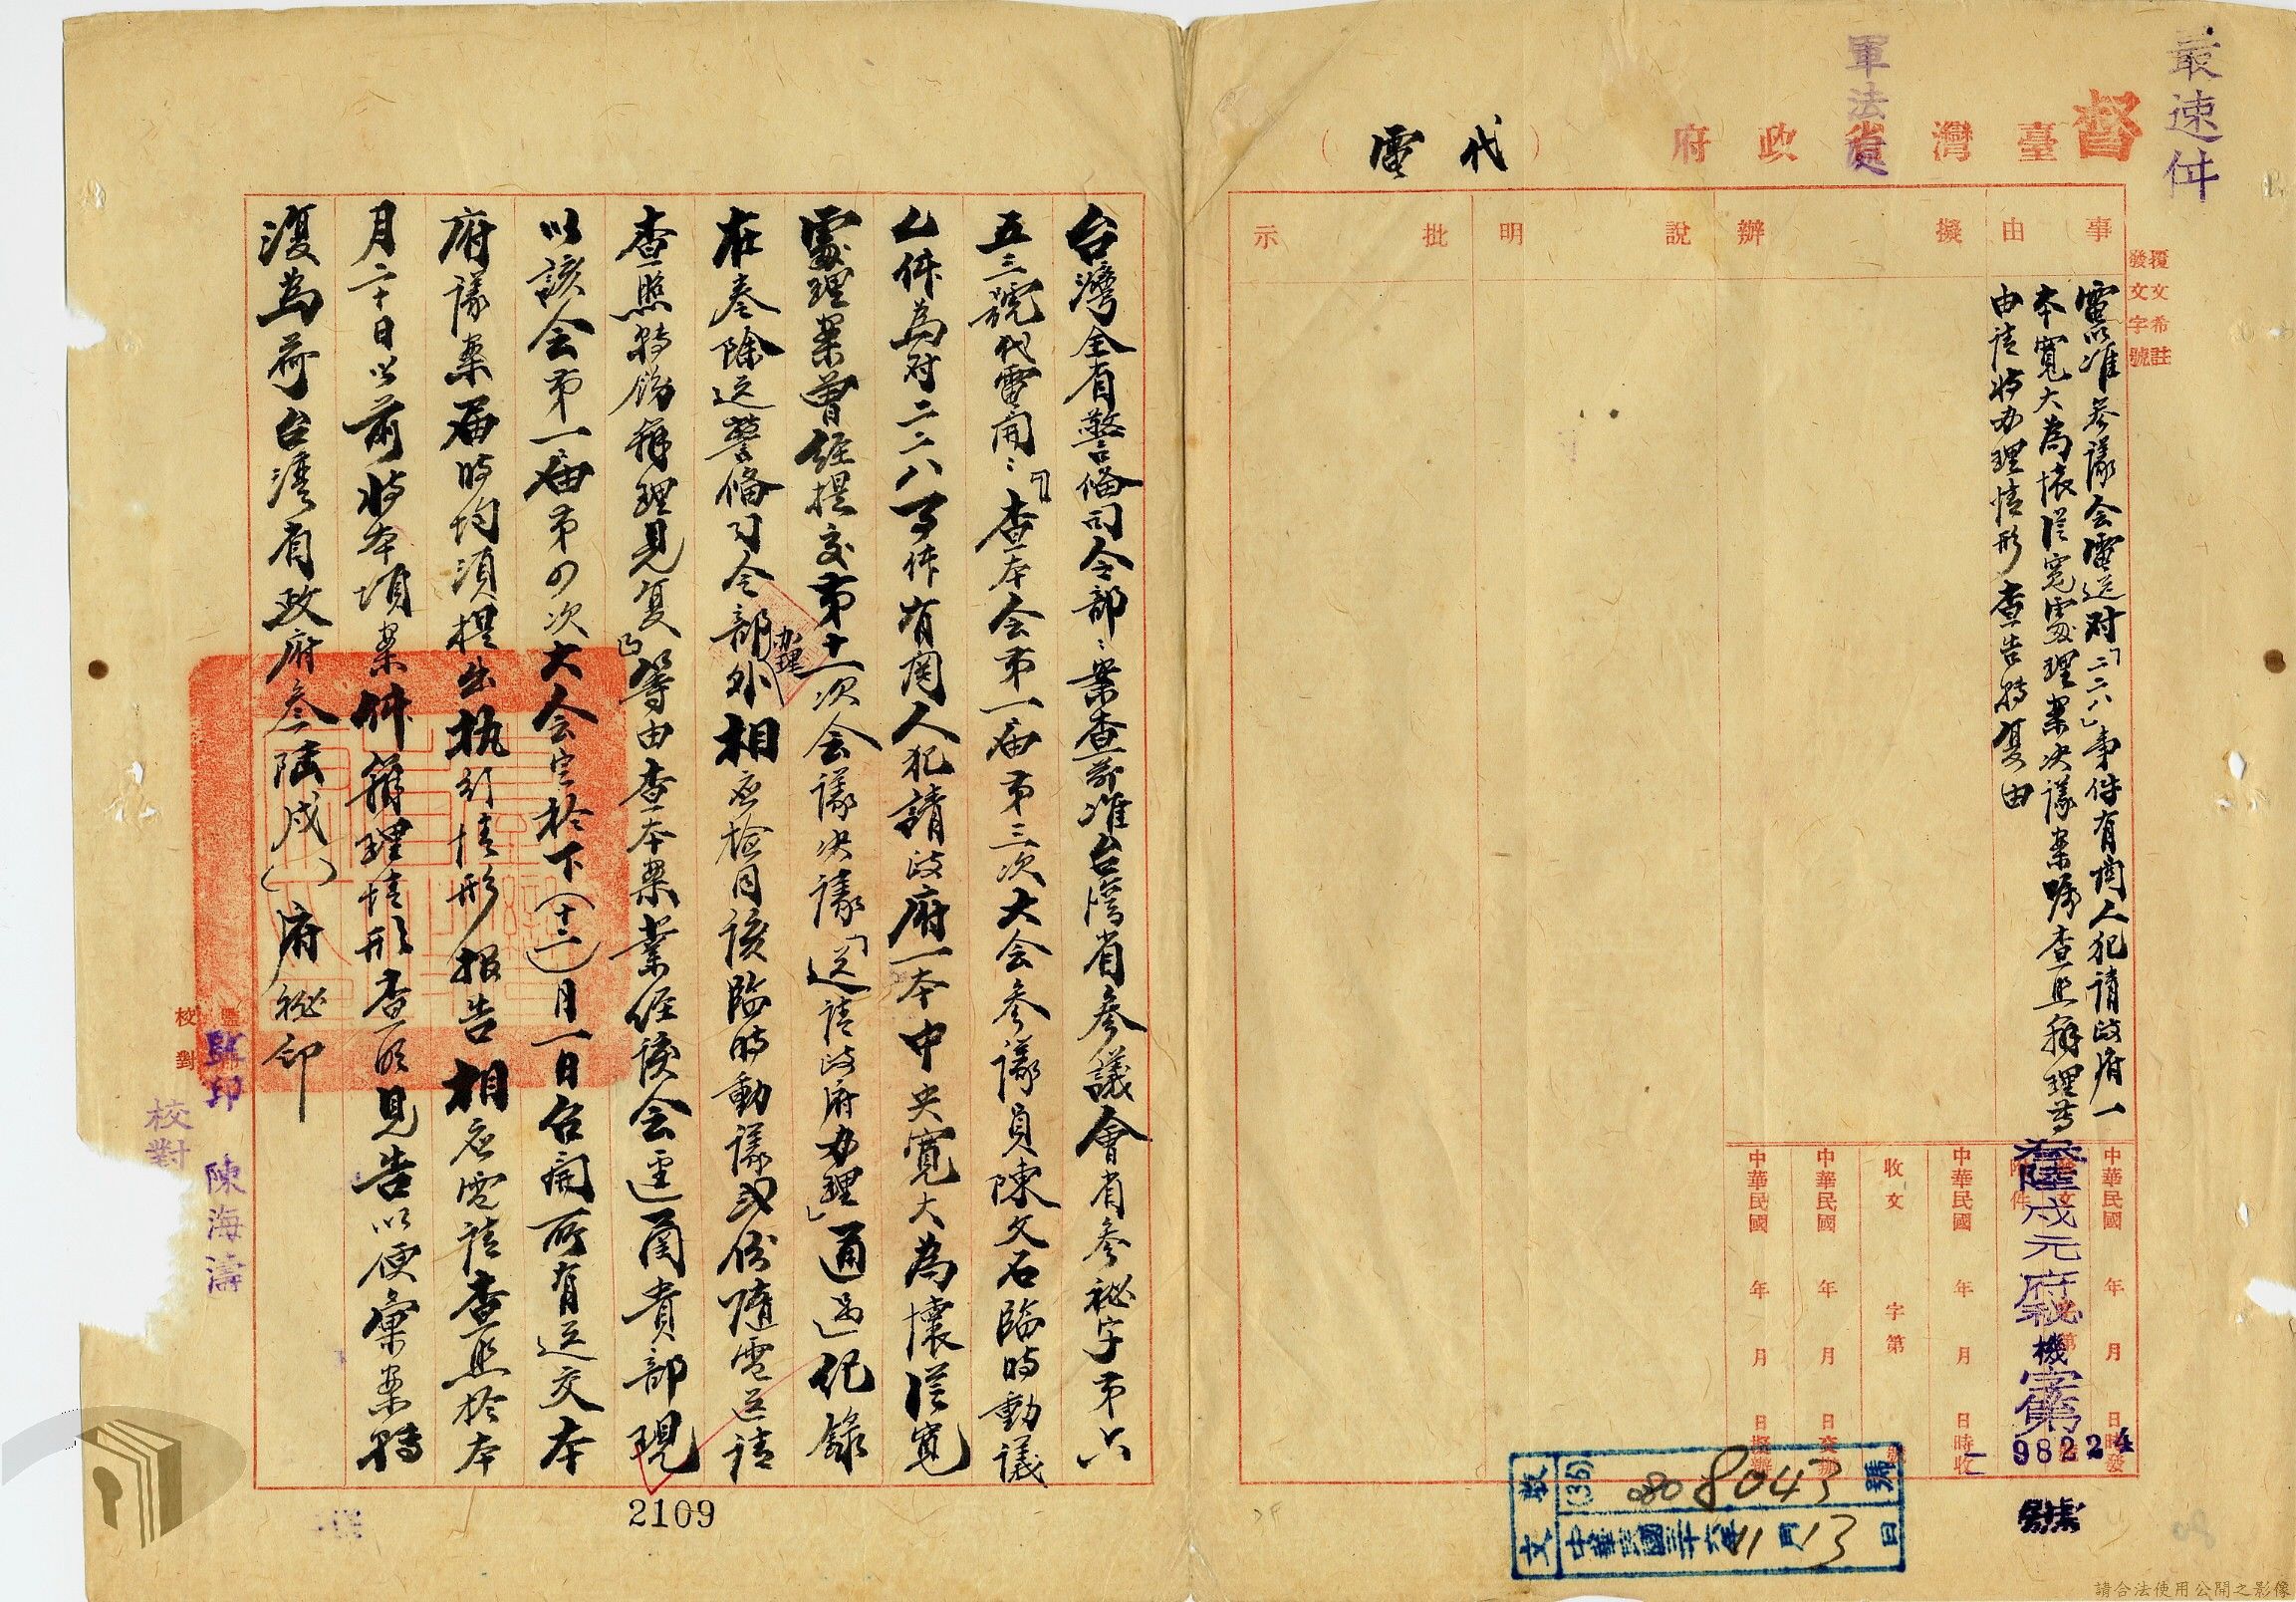 最速件
督
軍法處
臺灣省政府
（代電）
事由
擬辦
說明
批示
覆文希註
發文字號
電以准參議会電送对「二二八」事件有関人犯請政府一
本寬大為懷從寬處理案决議案囑查照辦理等
由請將办理情形查告特复由
中華民國 年 月 日 時發
附件
叁陸戌元府秘機字第
98224
號
中華民國 年 月 日 時收
收文 字第 號
中華民國 年 月 日 交辦
中華民國 年 月 日 擬辦
收文
(36) 080 8043 號
中華民國三十六年11月13日
台灣全省警備司令部：案查前准台灣省參議會省參祕字第六
五三號代電開：「查本会第一届第三次大会參議員陳文石臨時動議
乙件為对二二八事件有関人犯請政府一本中央寬大為懷從寬
處理案曾經提交第十一次会議决議「送請政府办理」通過紀錄
在卷除送警備司令部办理外相应檢同該臨時動議弍份隨電送請
查照轉飭辦理見复」等由查本案業經該会逕函貴部現
以該会第一届第四次大会定於下（十二）月一日召開所有送交本
府議案届時均須提出执行情形报告相应電請查照於本
月二十日以前將本項案件辦理情形查明見告以便彙案轉
復為荷台灣省政府叁陸戌（ ）府祕印
監印
校對
監印 陳海濤
校對
2109
請合法使用公開之影像